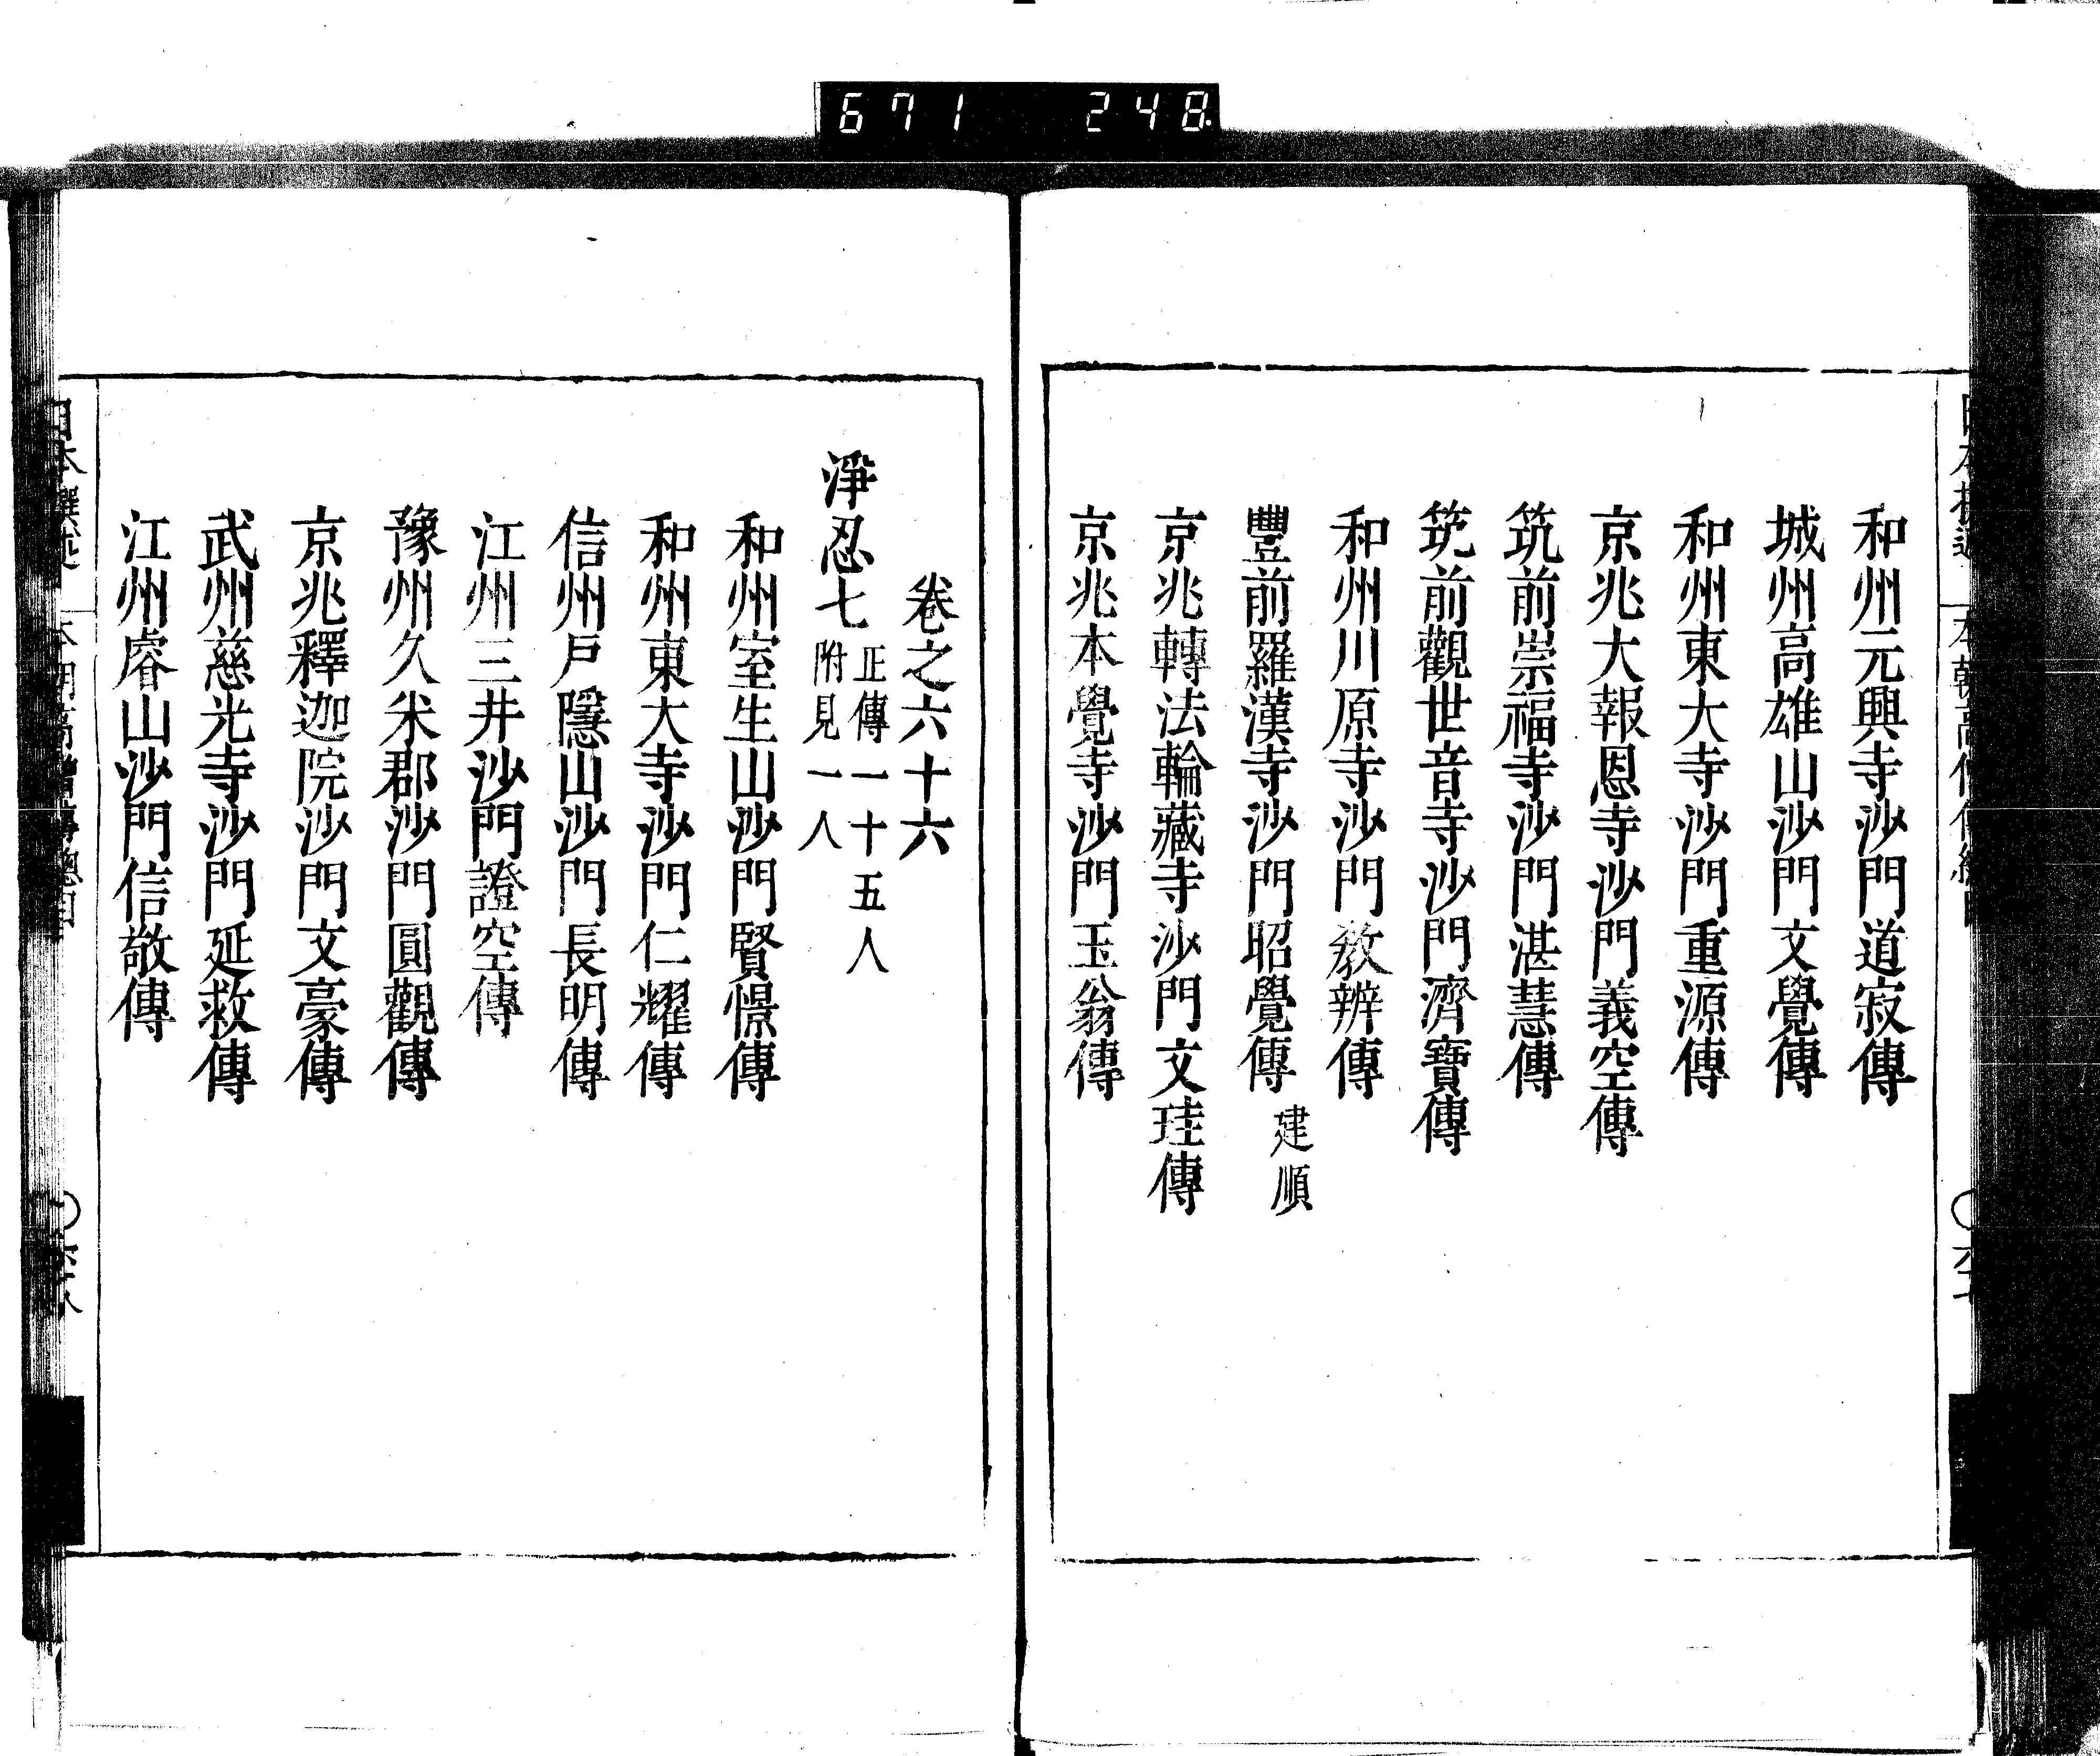 671 248
和州元興寺沙門道寂傳
城州高雄山沙門文覺傳
和州東大寺沙門重源傳
京兆大報恩寺沙門義空傳
筑前崇福寺沙門湛慧傳
筑前觀世音寺沙門濟寶傳
和州川原寺沙門敎辨傳
豐前羅漢寺沙門昭覺傳 建順
京兆轉法輪藏寺沙門文珪傳
京兆本覺寺沙門玉翁傳
卷之六十六
淨忍七 正傳一十五人 附見一人
和州室生山沙門賢憬傳
和州東大寺沙門仁耀傳
信州戸隱山沙門長明傳
江州三井沙門證空傳
豫州久米郡沙門圓觀傳
京兆釋迦院沙門文豪傳
武州慈光寺沙門延救傳
江州睿山沙門信敬傳